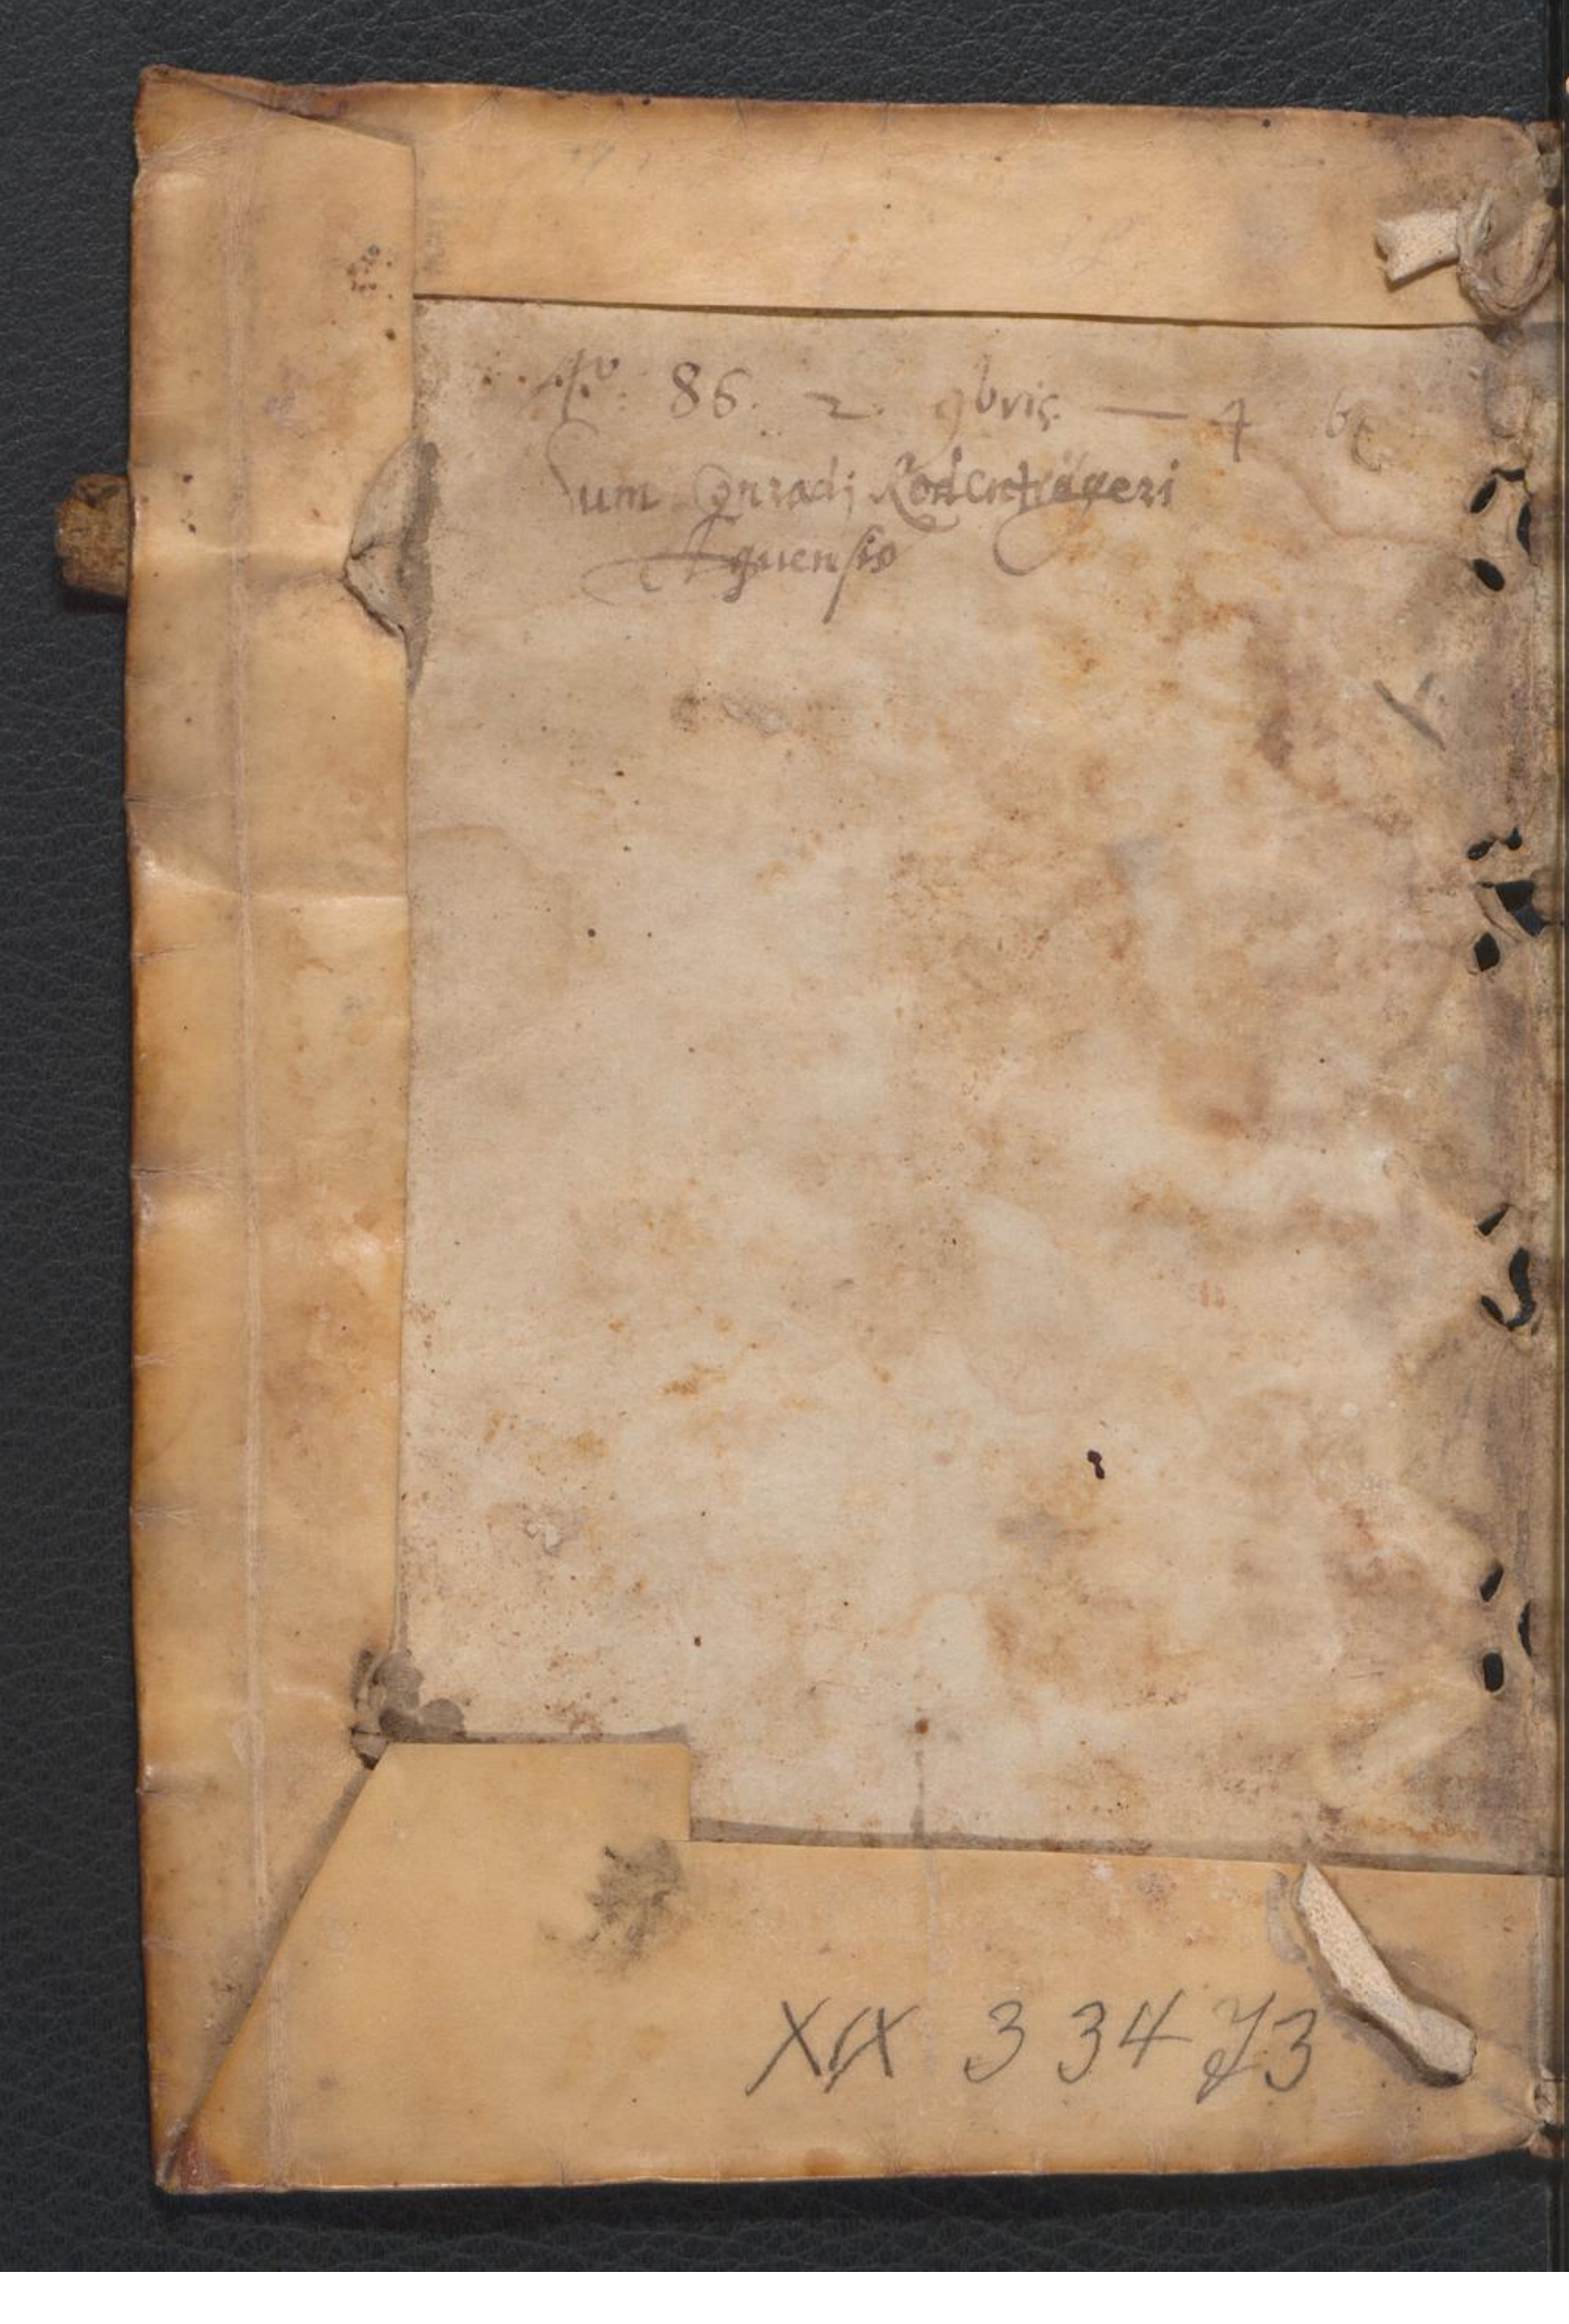 Aº 86. 2. 9bris — 4 bc
Sum Conradj Rodenträgeri
Aquensis
XIX 3 34 73